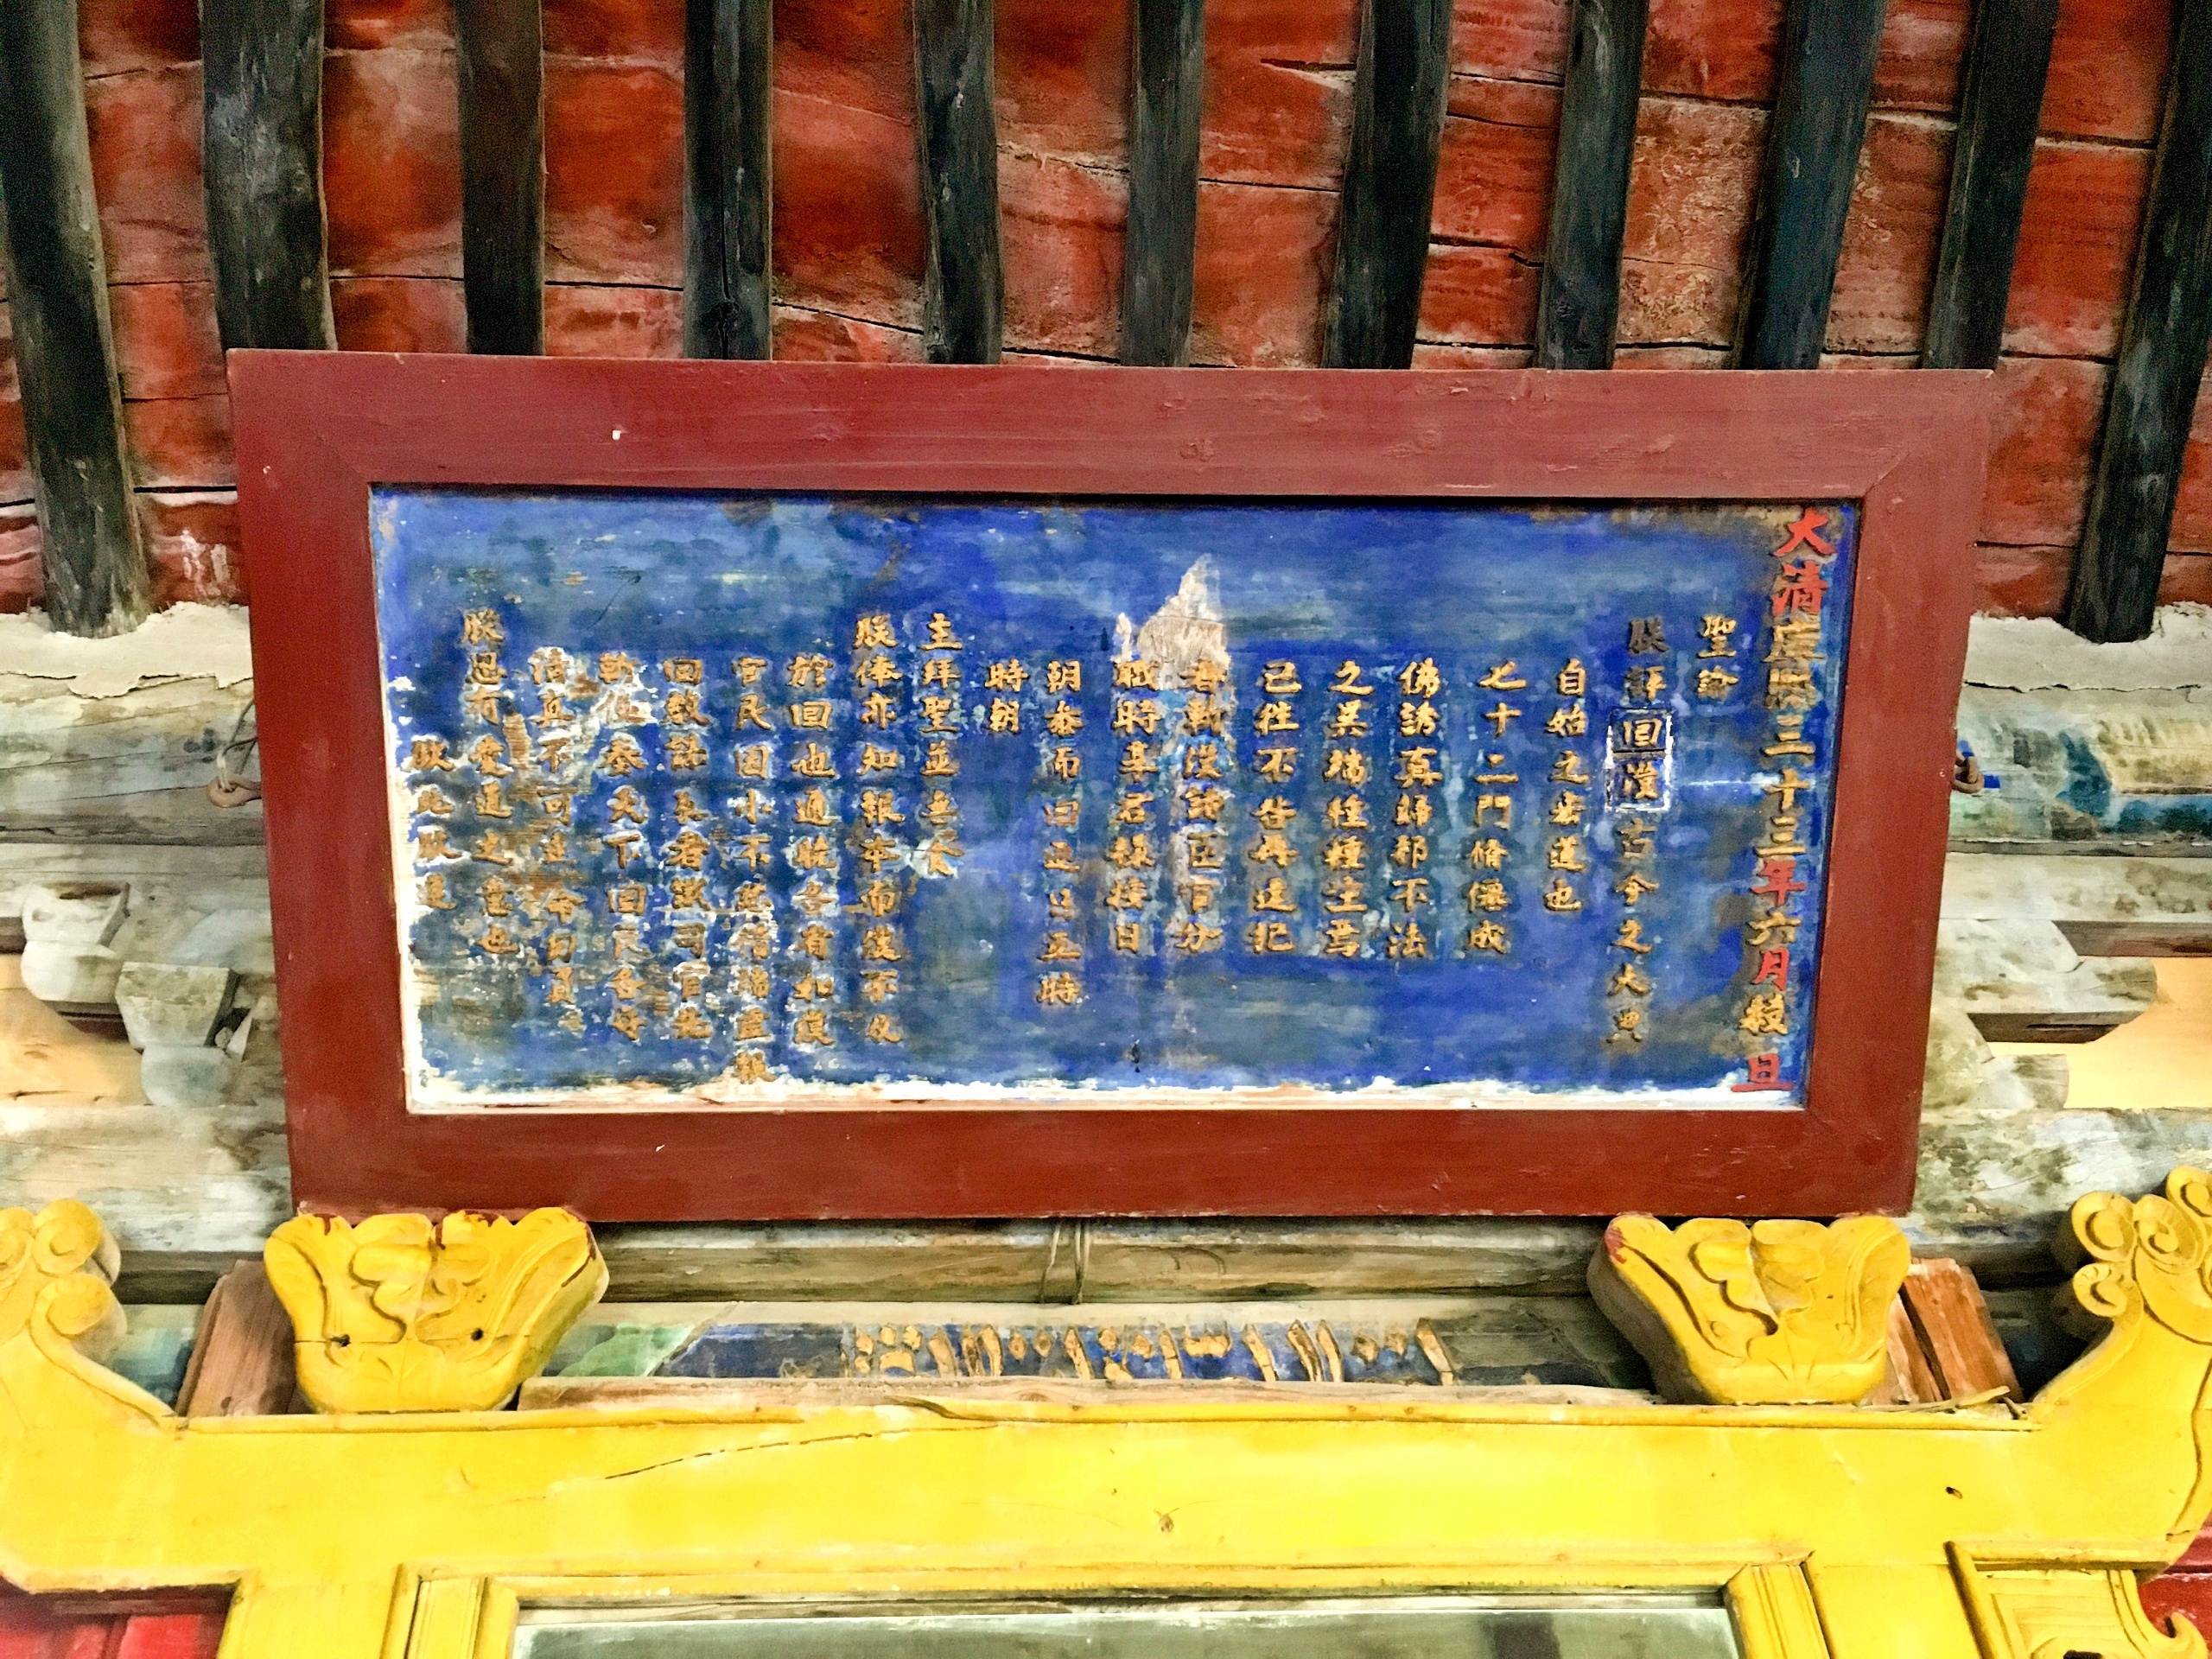 大清康熙三十三年六月穀旦
聖諭
朕評回漢古今之大典
自始之宏道也
七十二門修僊成
佛誘真歸邪不法
之異端種種生焉
已往不咎再違犯
者斬漢諸臣官分
職時享君祿按日
朝參而回逐日五時
時朝
主拜聖並無食
朕俸亦知報本而漢不及
於回也通曉各省如漢
官民因小不忿借端虛報
回教謀反者職司官先
斬後奏天下回民各守
清真不可違令勿負
朕恩有愛道之意也
欽此欽遵